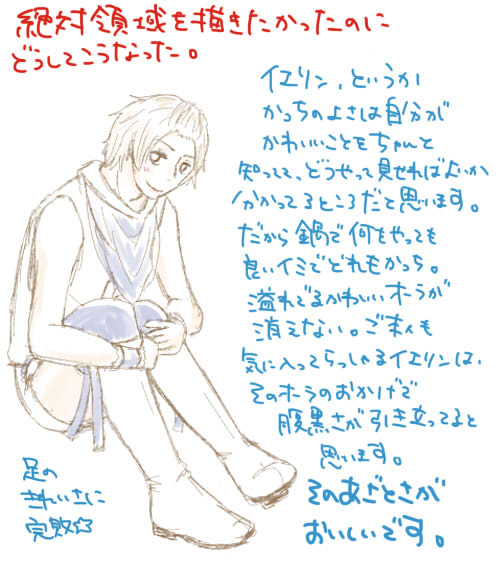 絶対領域を描きたかったのに
どうしてこうなった。
イエリン、というか
かっちのよさは自分が
かわいいことをちゃんと
知ってて、どうやって見せればよいか
分かってるところだと思います。
だから鍋で何をやっても
良いイミでどれもかっち。
溢れでるかわいいオーラが
消えない。ご本人も
気に入ってらっしゃるイエリンは、
そのオーラのおかげで
腹黒さが引き立ってると
思います。
そのあざとさが
おいしいです。
足の
きれいさに
完敗☆